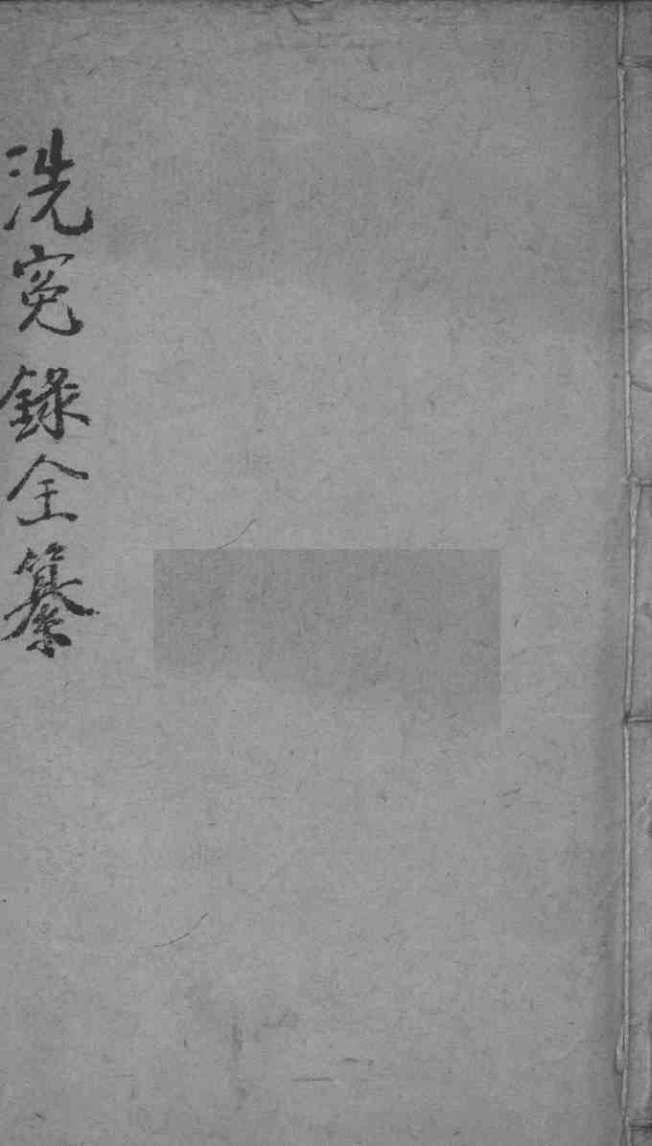 洗寃錄全纂